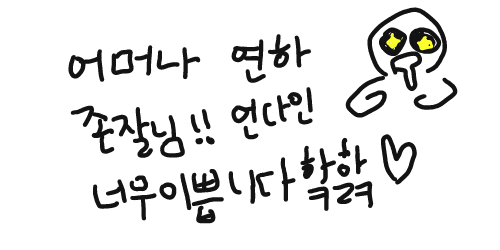 어머나 연하
존잘님!! 언다인
너무이쁩니다 학학♡